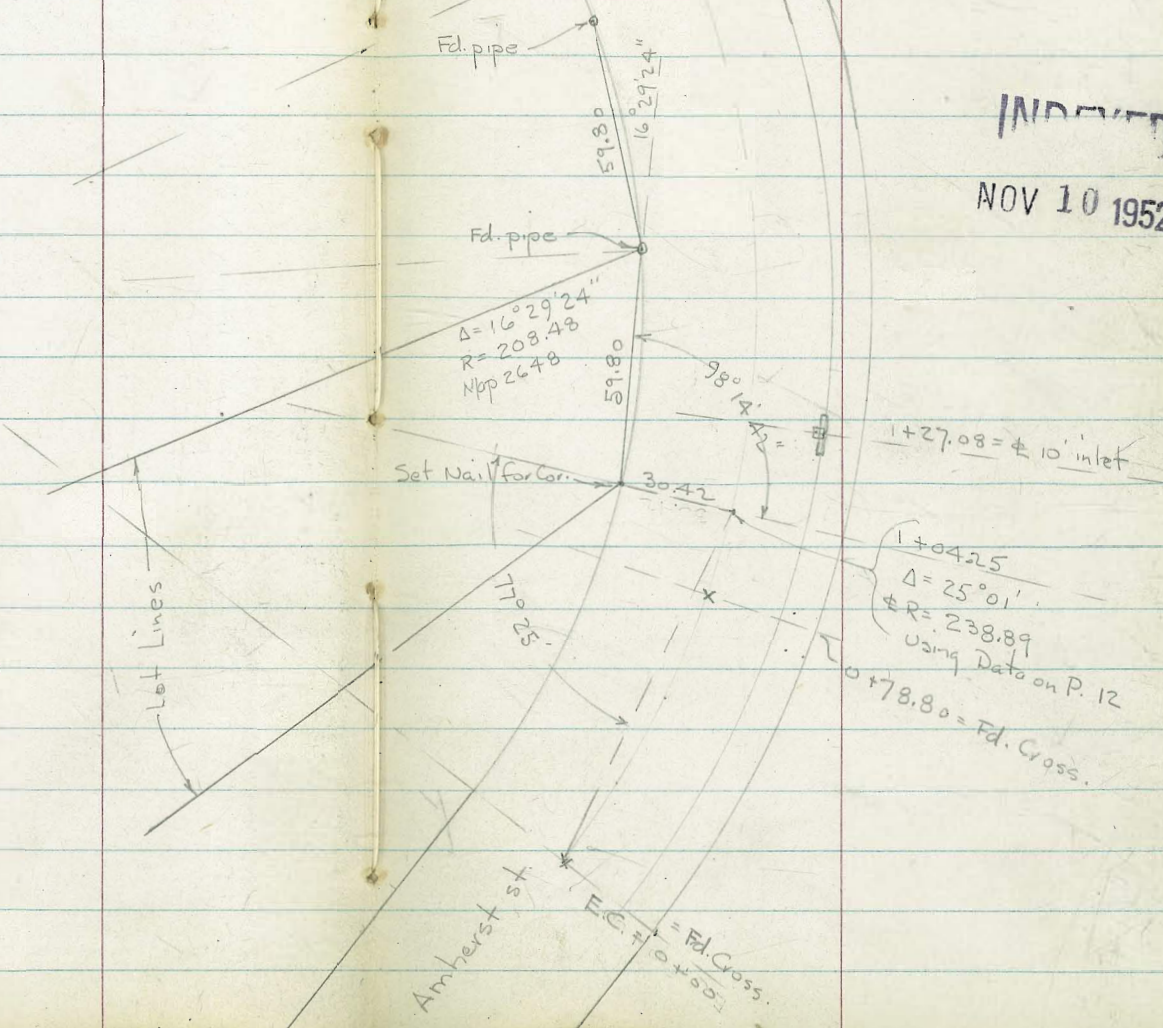 Fd. pipe
59.80
16°29'24"
INDEXED
NOV 10 1952
Fd. pipe
Δ= 16°29'24"
R= 208.48
Npp 2648
59.80
98°14'42"
1+27.08 = ℄ 10' inlet
Set Nail for Cor.
30.42
1+04.25
Δ= 25°01'
℄ R= 238.89
Using Data on P. 12
77°25'
Lot Lines
0+78.80 = Fd. Cross.
Amherst St.
E.C. + 0+00 = Fd. Cross.